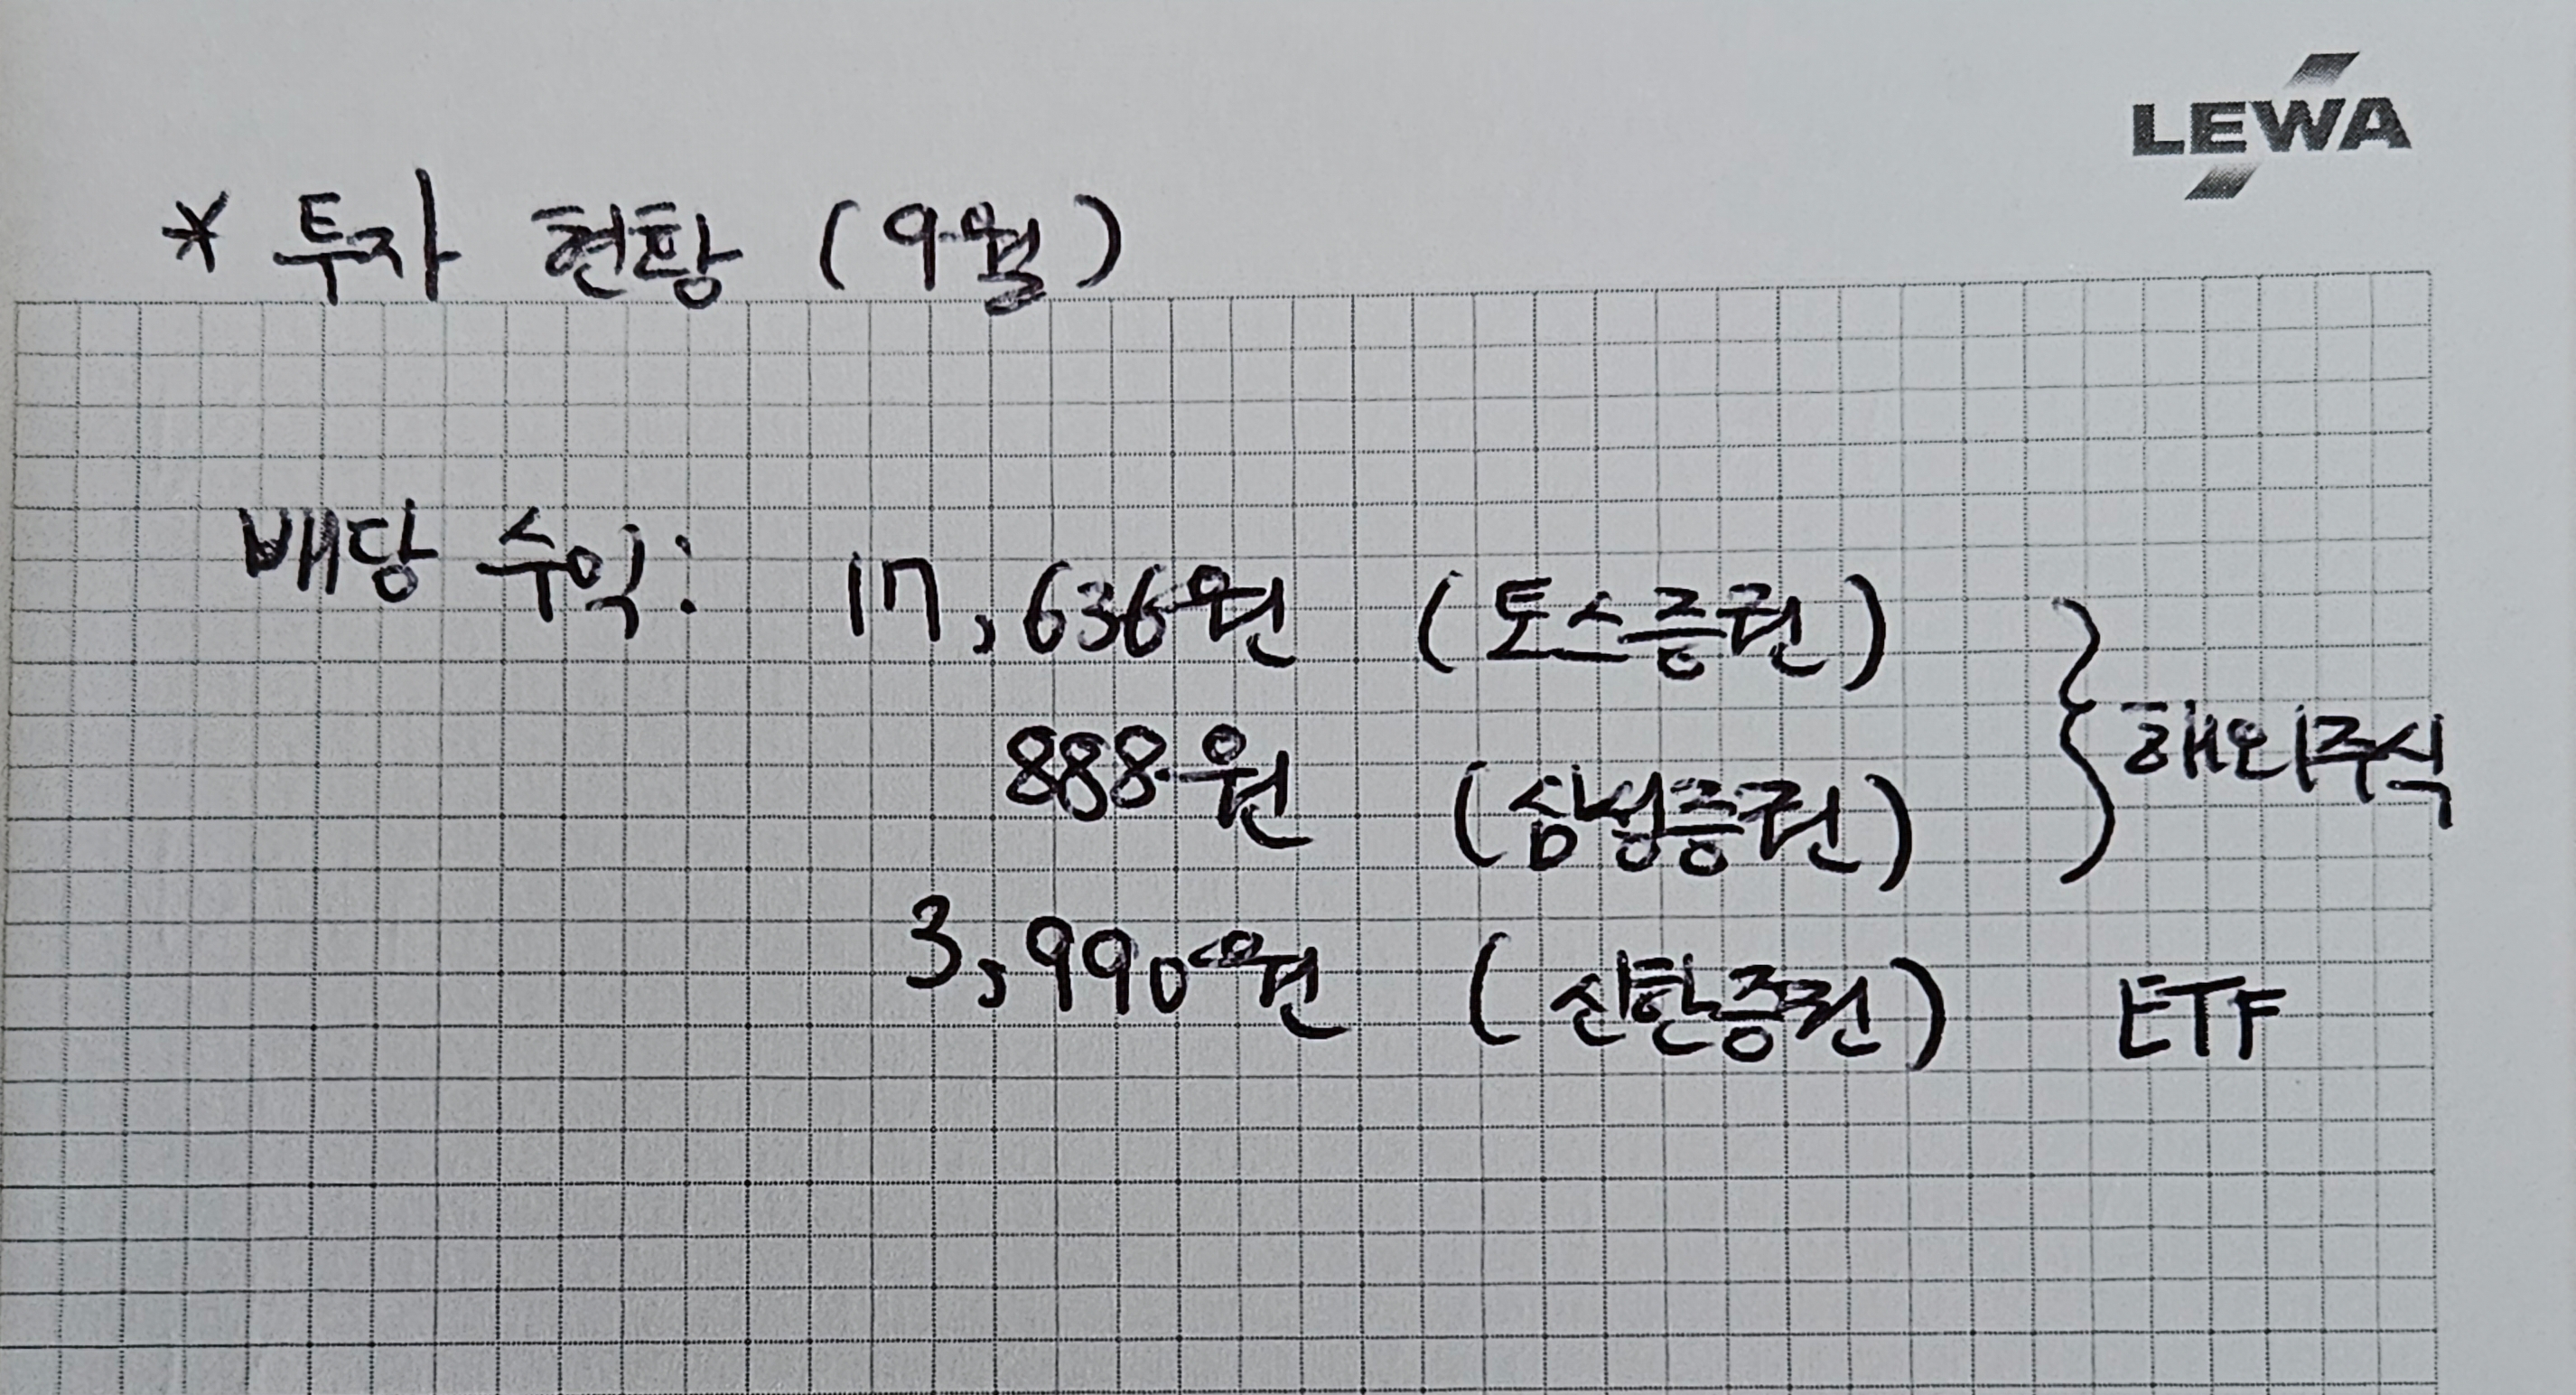 LEWA
* 투자 현황 (9월)
배당 수익: 17,636원 (토스증권)
888원 (삼성증권)
해외주식
3,990원 (신한증권) ETF